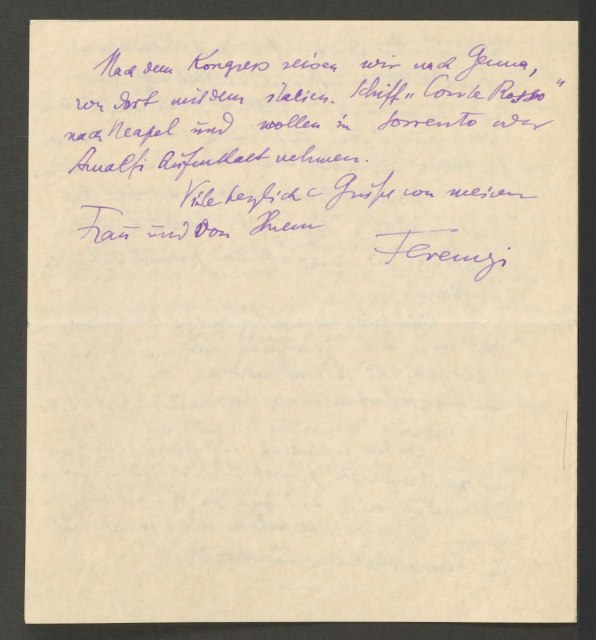 Nach dem Kongress reisen wir nach Genua,
von dort mit dem italien. Schiff „Conte Rosso"
nach Neapel und wollen in Sorrento oder
Amalfi Aufenthalt nehmen.
Viele herzliche Grüße von meiner
Frau und von Ihrem
Ferenczi